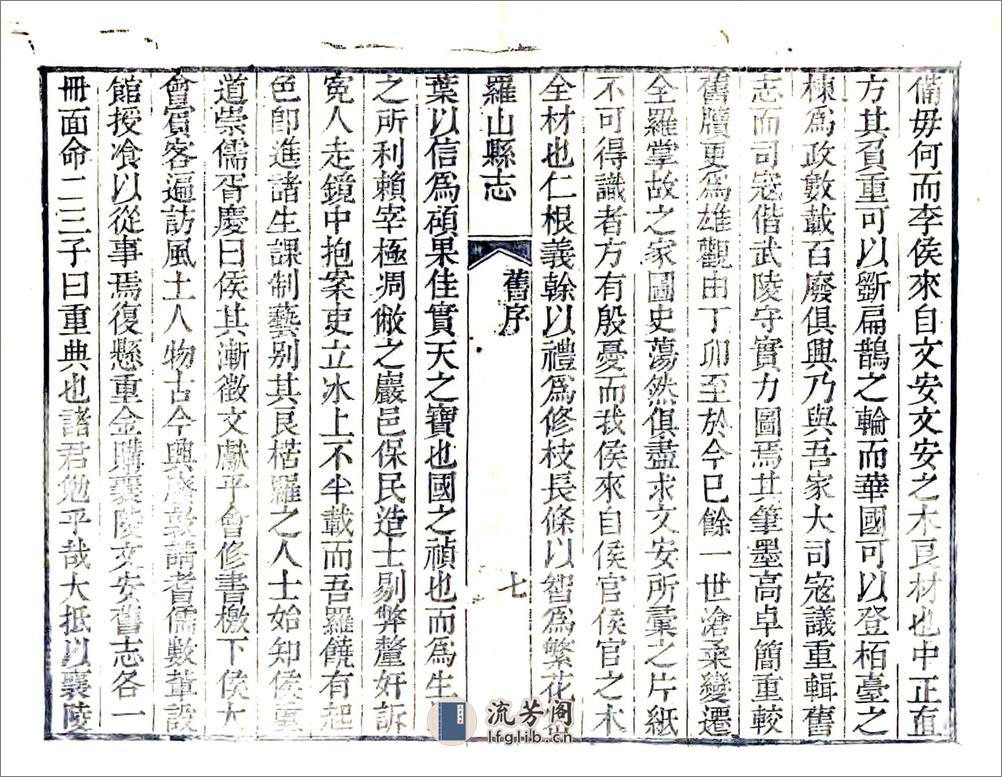 備毋何而李侯來自文安文安之木良材也中正直
方其負重可以斵扁鵲之輪而華國可以登栢臺之
棟為政數載百廢俱興乃與吾家大司寇議重輯舊
志而司寇偕武陵守實力圖焉其筆墨高卓簡重較
舊牘更為雄觀由丁卯至於今巳餘一世滄桑變遷
全羅掌故之家圖史蕩然俱盡求文安所彚之片紙
不可得識者方有殷憂而我侯來自侯官侯官之木
全材也仁根義榦以禮為修枝長條以智為繁花
羅山縣志
舊序
七
葉以信為碩果佳實天之寶也國之禎也而為生
之所利賴宰極凋敝之巖邑保民造士剔弊釐奸訴
寃人走鏡中抱案吏立冰上不半載而吾羅饒有起
色卽進諸生課制藝別其良楛羅之人士始知侯重
道崇儒胥慶曰侯其漸徵文獻乎會修書檄下侯大
會賓客遍訪風土人物古今興廢敦請耆儒數輩設
館授飡以從事焉復懸重金購襄陵文安舊志各一
冊面命二三子曰重典也諸君勉乎哉大抵以襄陵
流芳阁
lfglib.cn